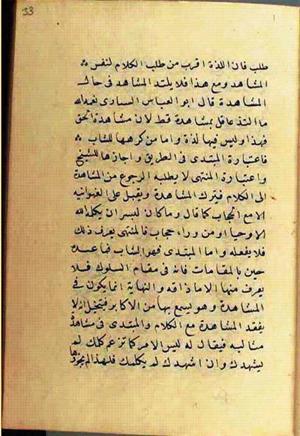 33
طلب فان اللذة اقرب من طلب الكلام لنفس
المشاهد ومع هذا فلا يلتذ المشاهد في حال
المشاهدة قال ابو العباس السيارى رحمه الله
ما التذ عاقل بمشاهدة قط لان مشاهدة الحق
فناء وليس فيها لذة واما من كرهها للشاب
فاعتباره المبتدى في الطريق واجازها للشيخ
واعتباره المنتهى لا يطلب الرجوع من المشاهدة
الى الكلام فيترك المشاهدة ويقبل على الفهوانية
الا مع الحجاب كما قال وما كان لبشر ان يكلمه الله
الا وحيا او من وراء حجاب فالمنتهى يعرف ذلك
فلا يفعله واما المبتدى فهو الشاب فما عنده
خبر بالمقامات فانه في مقام السلوك فلا
يعرف منها الا ما ذاقه والنهاية انما يكون في
المشاهدة وهو يسمع بها من الاكابر فيتخيل انه لا
يفقد المشاهدة مع الكلام والمبتدى في مشاهدة
مثالية فيقال له ليس الامر كما تزعم ان كلمك لم
يشهدك وان اشهدك لم يكلمك فلهذا لم يجوزها